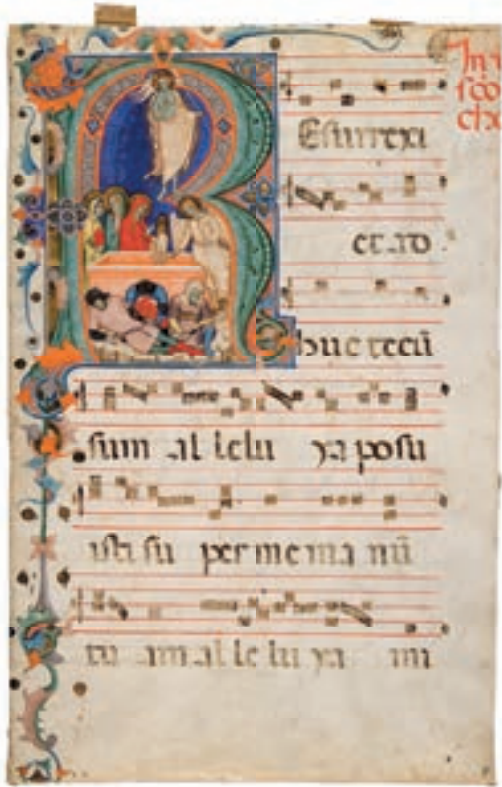 Resurrexi
et ad
huc tecū
sum al lelu ya posu
isti su per me ma nū
tu am al le lu ya mi